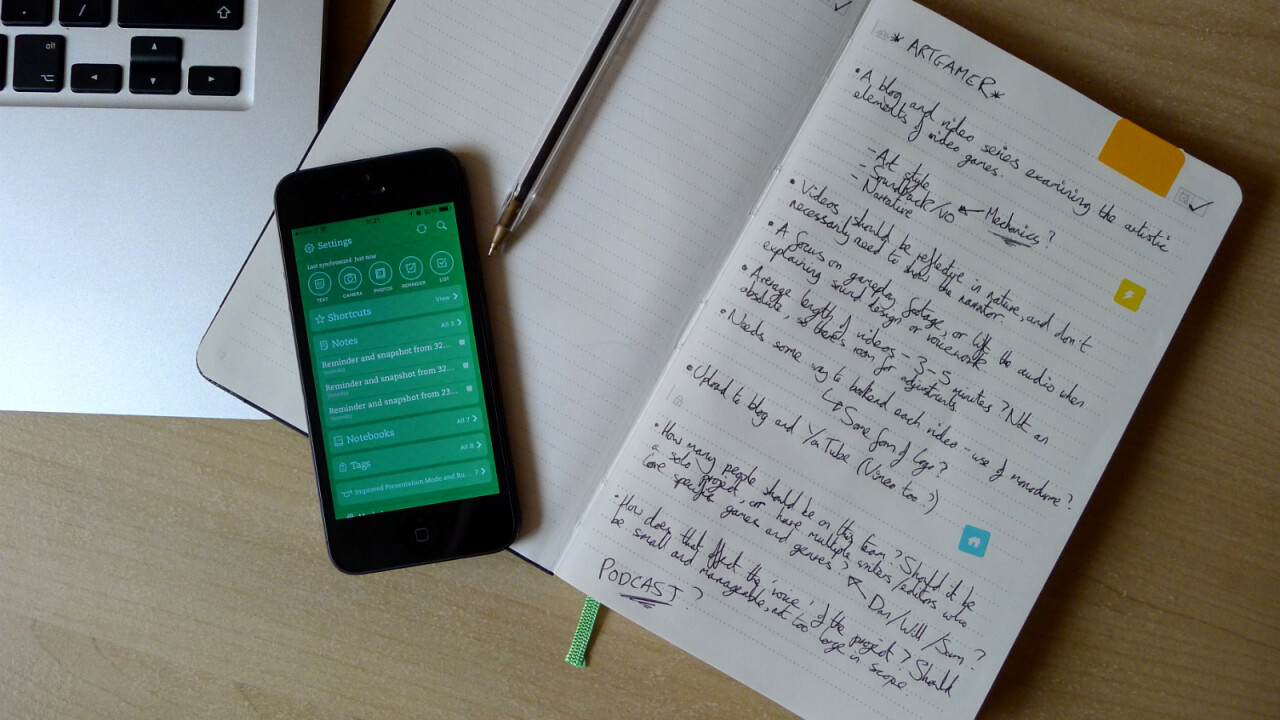 alt
Settings
Last synchronized: Just now
TEXT
CAMERA
PHOTOS
REMINDER
LIST
Shortcuts
View >
Notes
All 3 >
Reminder and snapshot from 32...
Yesterday
Reminder and snapshot from 32...
Yesterday
Reminder and snapshot from 23...
Yesterday
Notebooks
All 7 >
Tags
All 8 >
Improved Presentation Mode and Bu... ? >
* ARTGAMER *
• A blog and video series examining the artistic
elements of video games.
- Art style
- Soundtrack/VO ← Mechanics?
- Narrative
• Videos should be reflective in nature, and don't
necessarily need to show the narrator.
• A focus on gameplay footage, or lift the audio when
explaining sound design or voicework
• Average length of videos - 3-5 minutes? Not an
absolute, so there's room for adjustments.
• Needs some way to bookend each video - use of monochrome?
↳ Some form of logo?
• Upload to blog and YouTube (Vimeo too?)
• How many people should be on this team? Should it be
a solo project, or have multiple writers/editors who
love specific games and genres? ← Dan/Will/Sam?
• How does that affect the 'voice' of the project? Should
be small and manageable, not too large in scope
PODCAST?